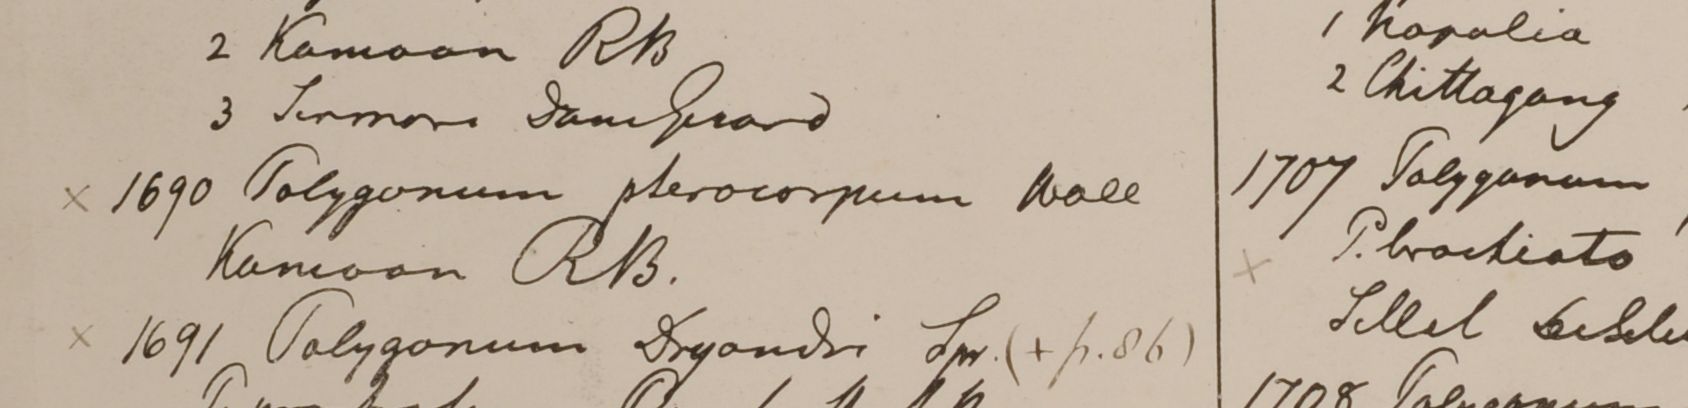 2 Kamoon RB
3 Sirmore Dam Gerard
× 1690 Polygonum pterocarpum Wall
Kamoon RB.
× 1691 Polygonum Dryandri Spr. (+ p. 86)
1 Napalia
2 Chittagong
1707 Polygonum
× P. brachiata
Sillet
1708 Polygonum